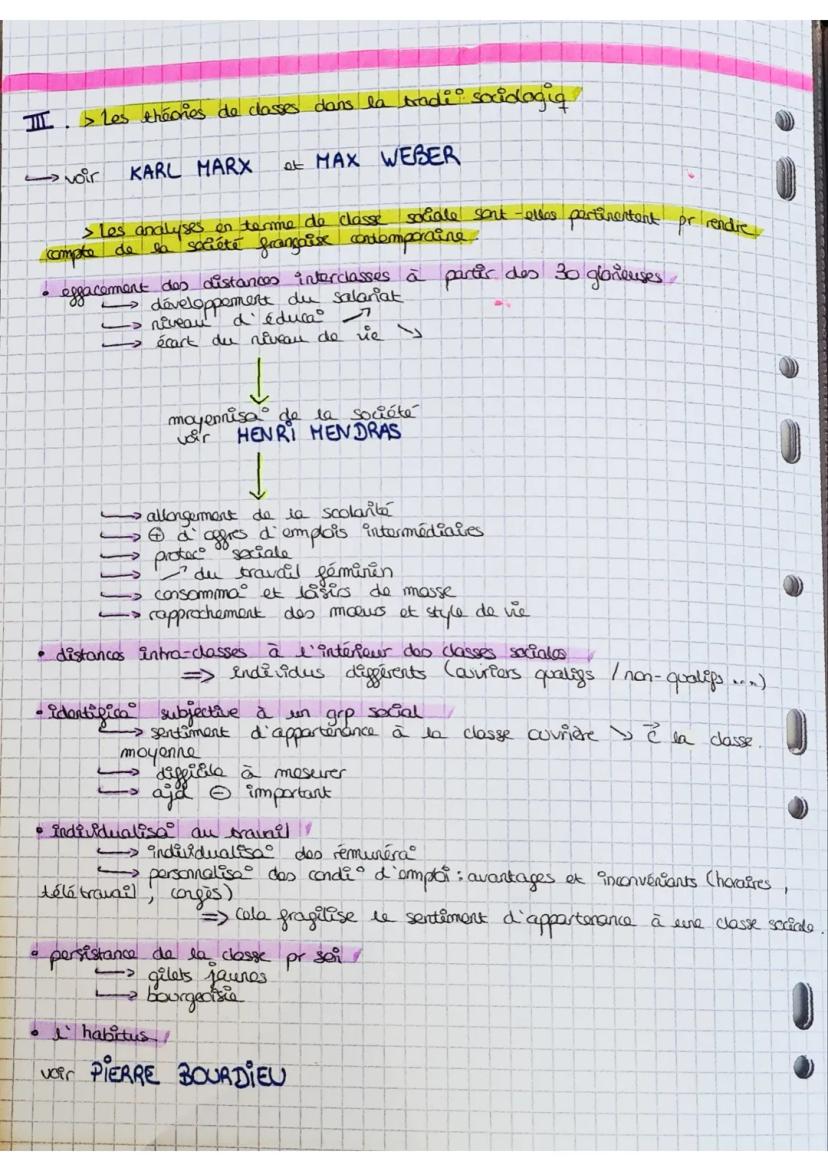 III. > Les théories de classes dans la tradi° sociologiq
→ voir KARL MARX et MAX WEBER
> Les analyses en terme de classe sociale sont-elles pertinentent pr rendre
compte de la société française contemporaine.
• effacement des distances interclasses à partir des 30 glorieuses
→ développement du salariat
→ niveau d'éduca° ↗
→ écart du niveau de vie ↘
↓
moyennisa° de la société
voir HENRI MENDRAS
↓
→ allongement de la scolarité
→ ⊕ d'offres d'emplois intermédiaires
→ protec° sociale
→ ↗ du travail féminin
→ consomma° et loisirs de masse
→ rapprochement des mœurs et style de vie
• distances intra-classes à l'intérieur des classes sociales
⇒ individus différents (ouvriers qualifs / non-qualifs ...)
• identifica° subjective à un grp social
→ sentiment d'appartenance à la classe ouvrière ↘ c̄ la classe.
moyenne
→ difficile à mesurer
→ ajd ⊖ important
• individualisa° du travail
→ individualisa° des rémunéra°
→ personnalisa° des condi° d'emploi : avantages et inconvénients (horaires,
télétravail, congés)
⇒ Cela fragilise le sentiment d'appartenance à une classe sociale.
• persistance de la classe pr soi
→ gilets jaunes
→ bourgeoisie
• l'habitus
voir PIERRE BOURDIEU